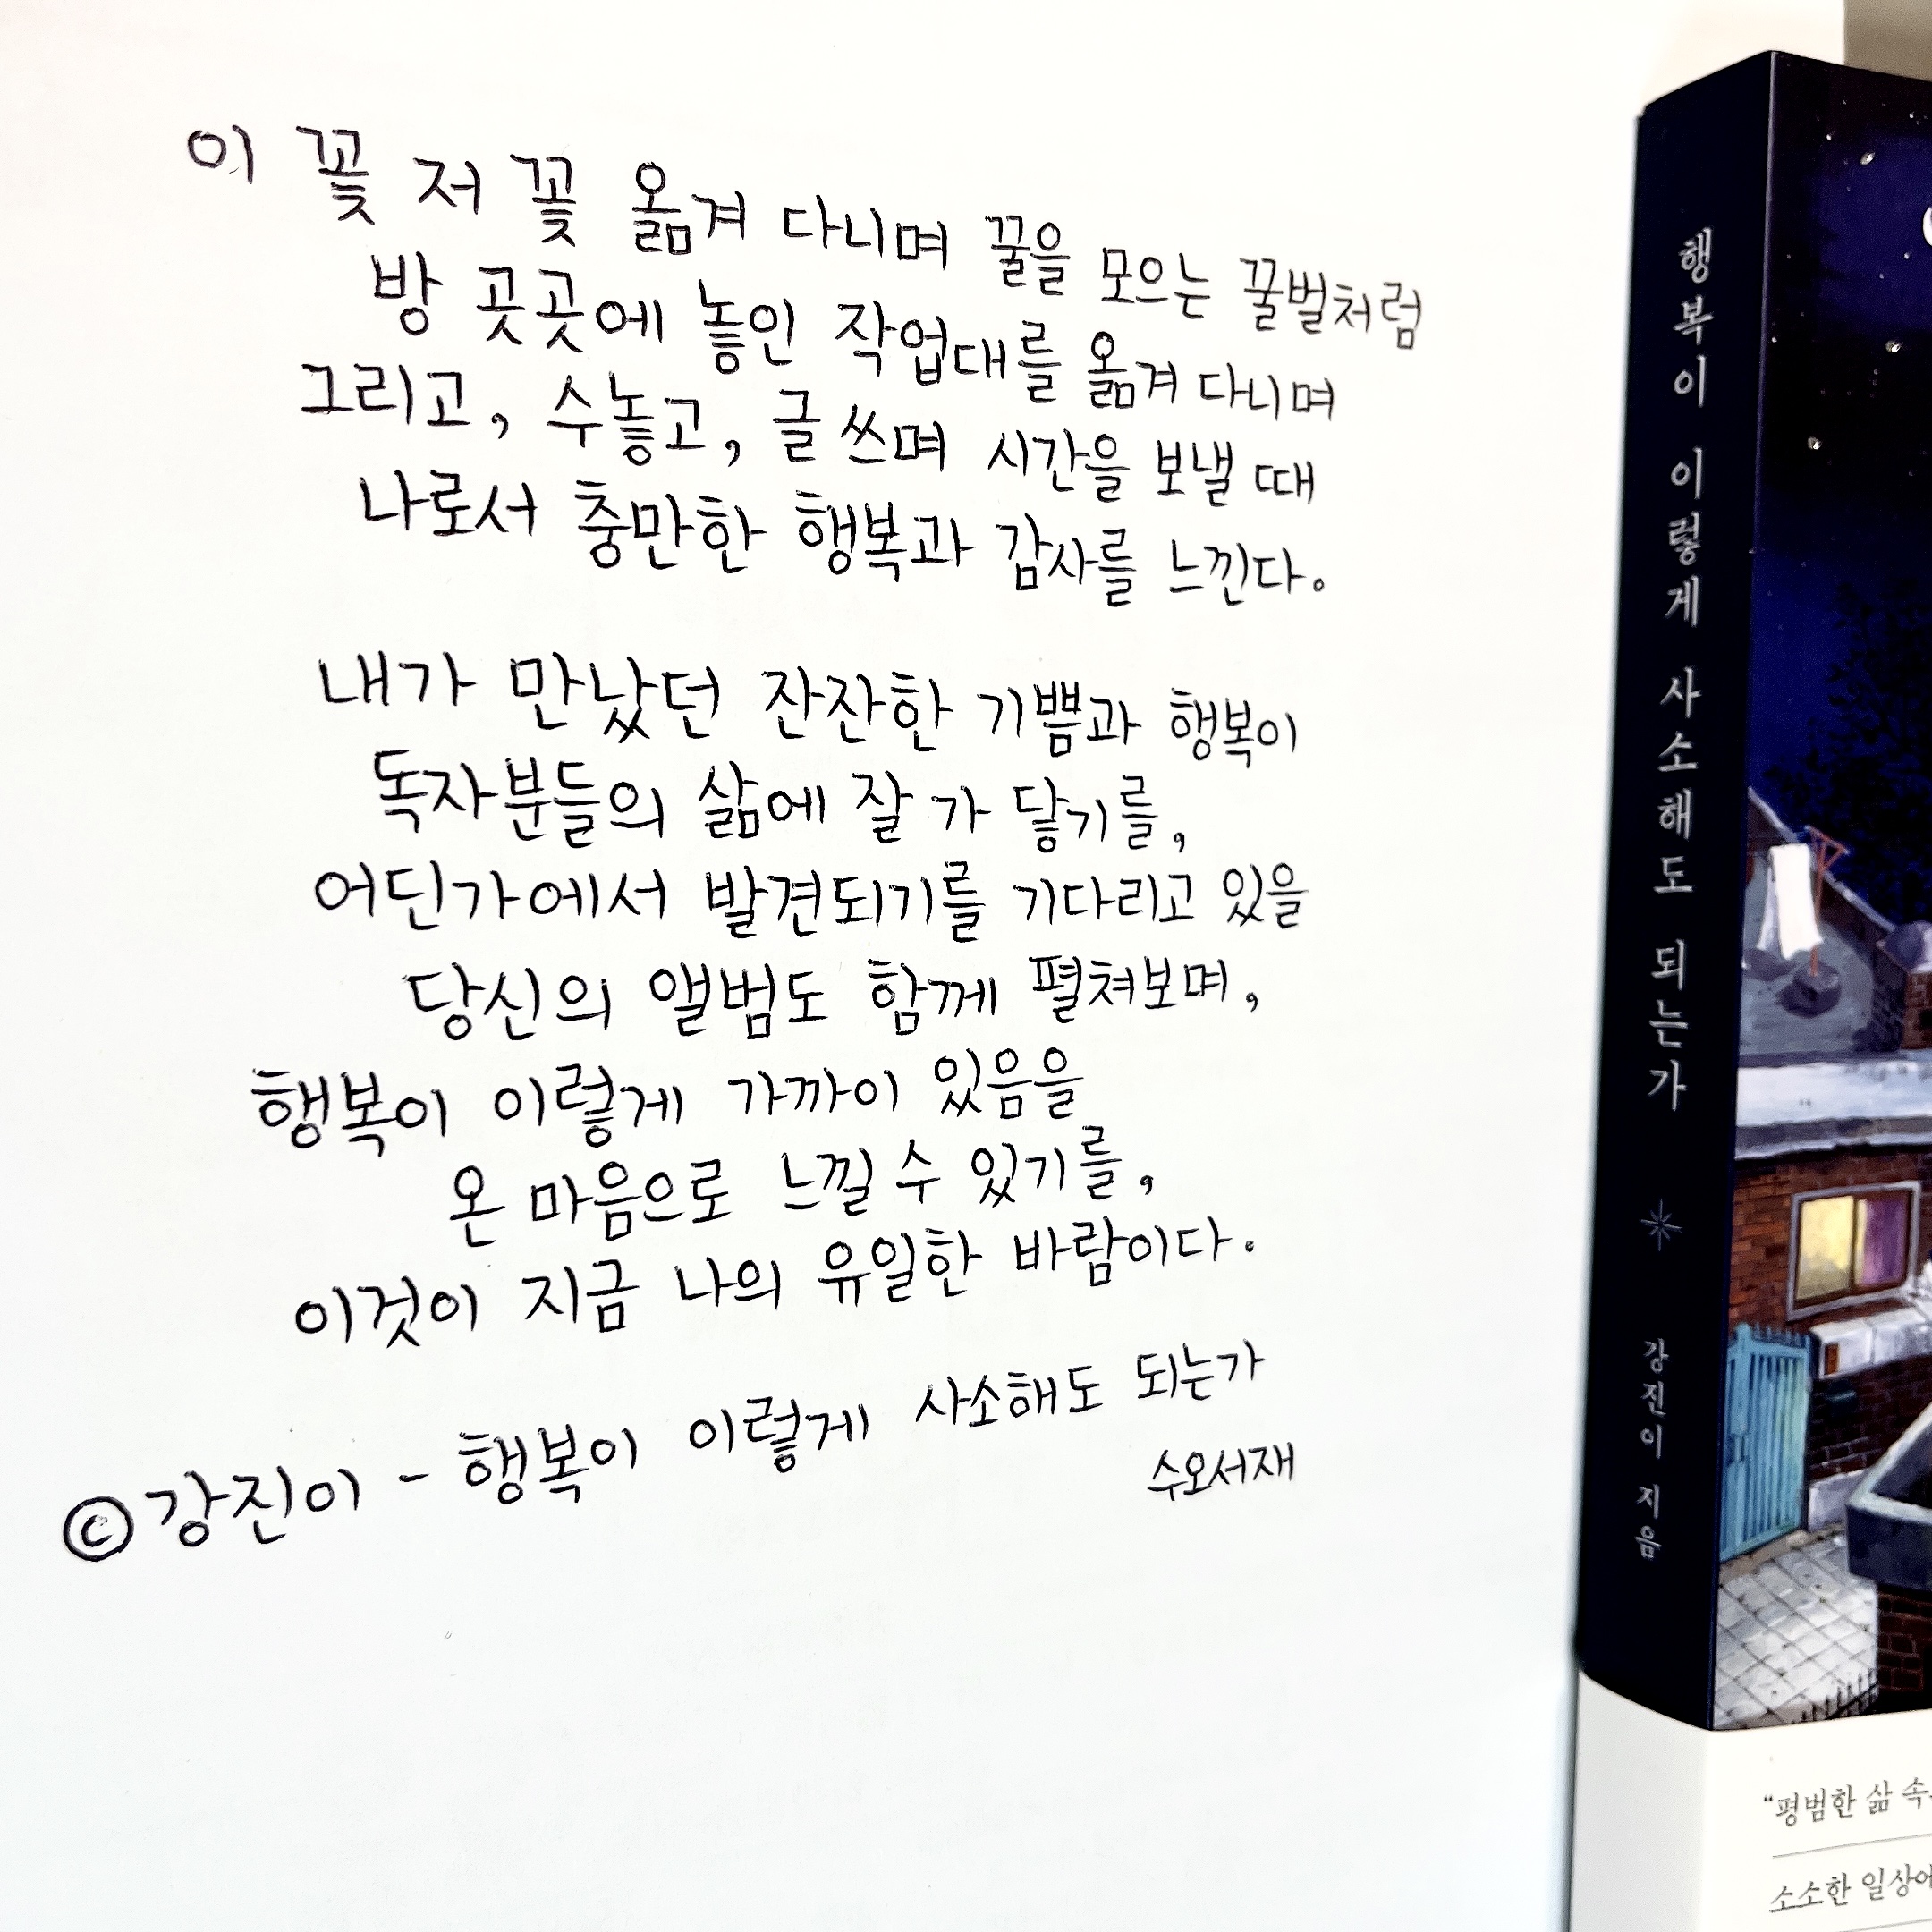 이 꽃 저 꽃 옮겨 다니며 꿀을 모으는 꿀벌처럼
방 곳곳에 놓인 작업대를 옮겨 다니며
그리고, 수놓고, 글 쓰며 시간을 보낼 때
나로서 충만한 행복과 감사를 느낀다.
내가 만났던 잔잔한 기쁨과 행복이
독자분들의 삶에 잘 가 닿기를,
어딘가에서 발견되기를 기다리고 있을
당신의 앨범도 함께 펼쳐보며,
행복이 이렇게 가까이 있음을
온 마음으로 느낄 수 있기를,
이것이 지금 나의 유일한 바람이다.
©강진이 - 행복이 이렇게 사소해도 되는가
수오서재
행복이 이렇게 사소해도 되는가 강진이 지음
"평범한 삶 속
소소한 일상에